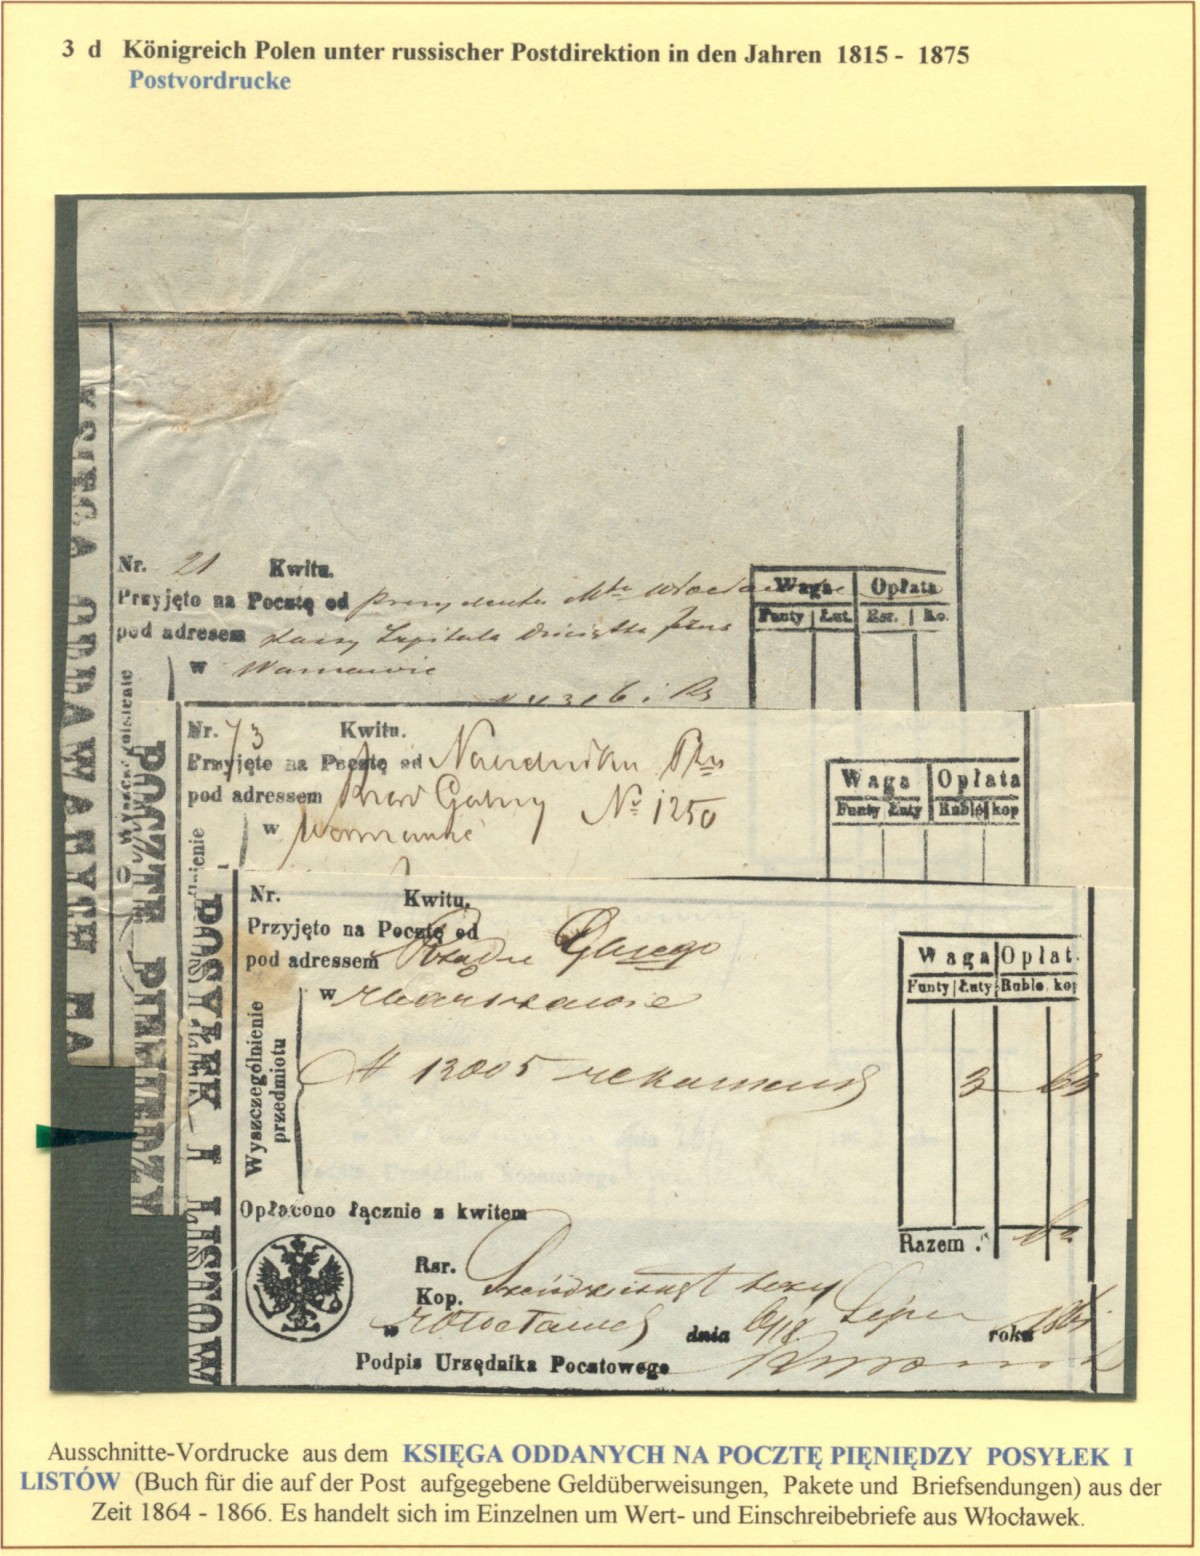 3 d Königreich Polen unter russischer Postdirektion in den Jahren 1815 - 1875
Postvordrucke
KSIĘGA ODDAWANYCH NA
Nr. 21 Kwitu.
Przyjęto na Pocztę od
pod adresem
w
Waga Opłata
Funty Łut. Rsr. Ko.
POCZTĘ PIENIĘDZY
Nr. 73 Kwitu.
Przyjęto na Pocztę od Naczelnika
pod adressem Rząd Gubny № 1250
w Warszawie
Waga Opłata
Funty Łuty Ruble kop
POSYŁEK I LISTÓW
Nr. Kwitu.
Przyjęto na Pocztę od
pod adressem Rządu Głnego
w Warszawie
Wyszczególnienie
przedmiotu
# 12005 rekomend
Waga Opłat.
Funty Łuty Ruble. kop
3 63
Opłacono łącznie z kwitem
Razem
Rsr.
Kop. Sześćdziesiąt trzy
w Włocławek dnia 6/18 Lipca roku 186
Podpis Urzędnika Pocztowego
Ausschnitte-Vordrucke aus dem KSIĘGA ODDANYCH NA POCZTĘ PIENIĘDZY POSYŁEK I
LISTÓW (Buch für die auf der Post aufgegebene Geldüberweisungen, Pakete und Briefsendungen) aus der
Zeit 1864 - 1866. Es handelt sich im Einzelnen um Wert- und Einschreibebriefe aus Włocławek.